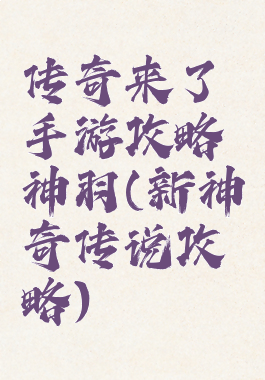 传奇来了
手游攻略
神羽(新神
奇传说攻
略)